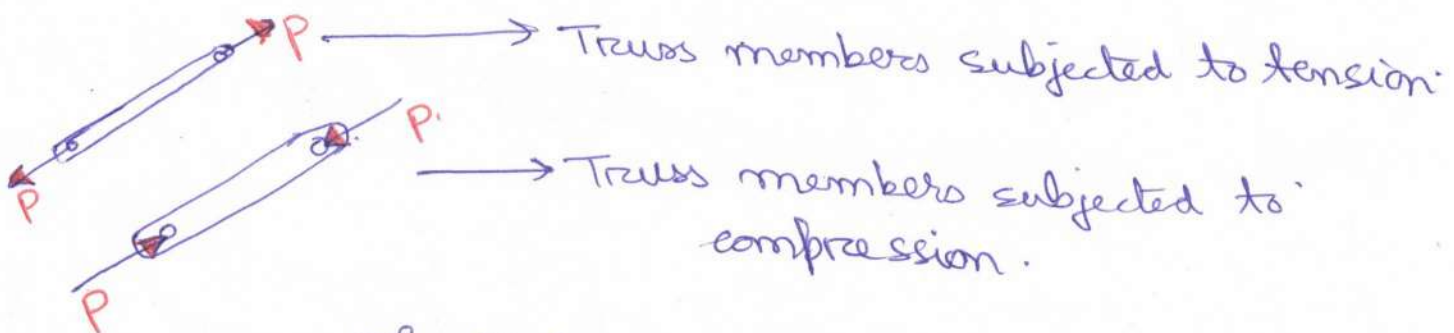 P → Truss members subjected to tension.
P
P.
→ Truss members subjected to
compression.
P